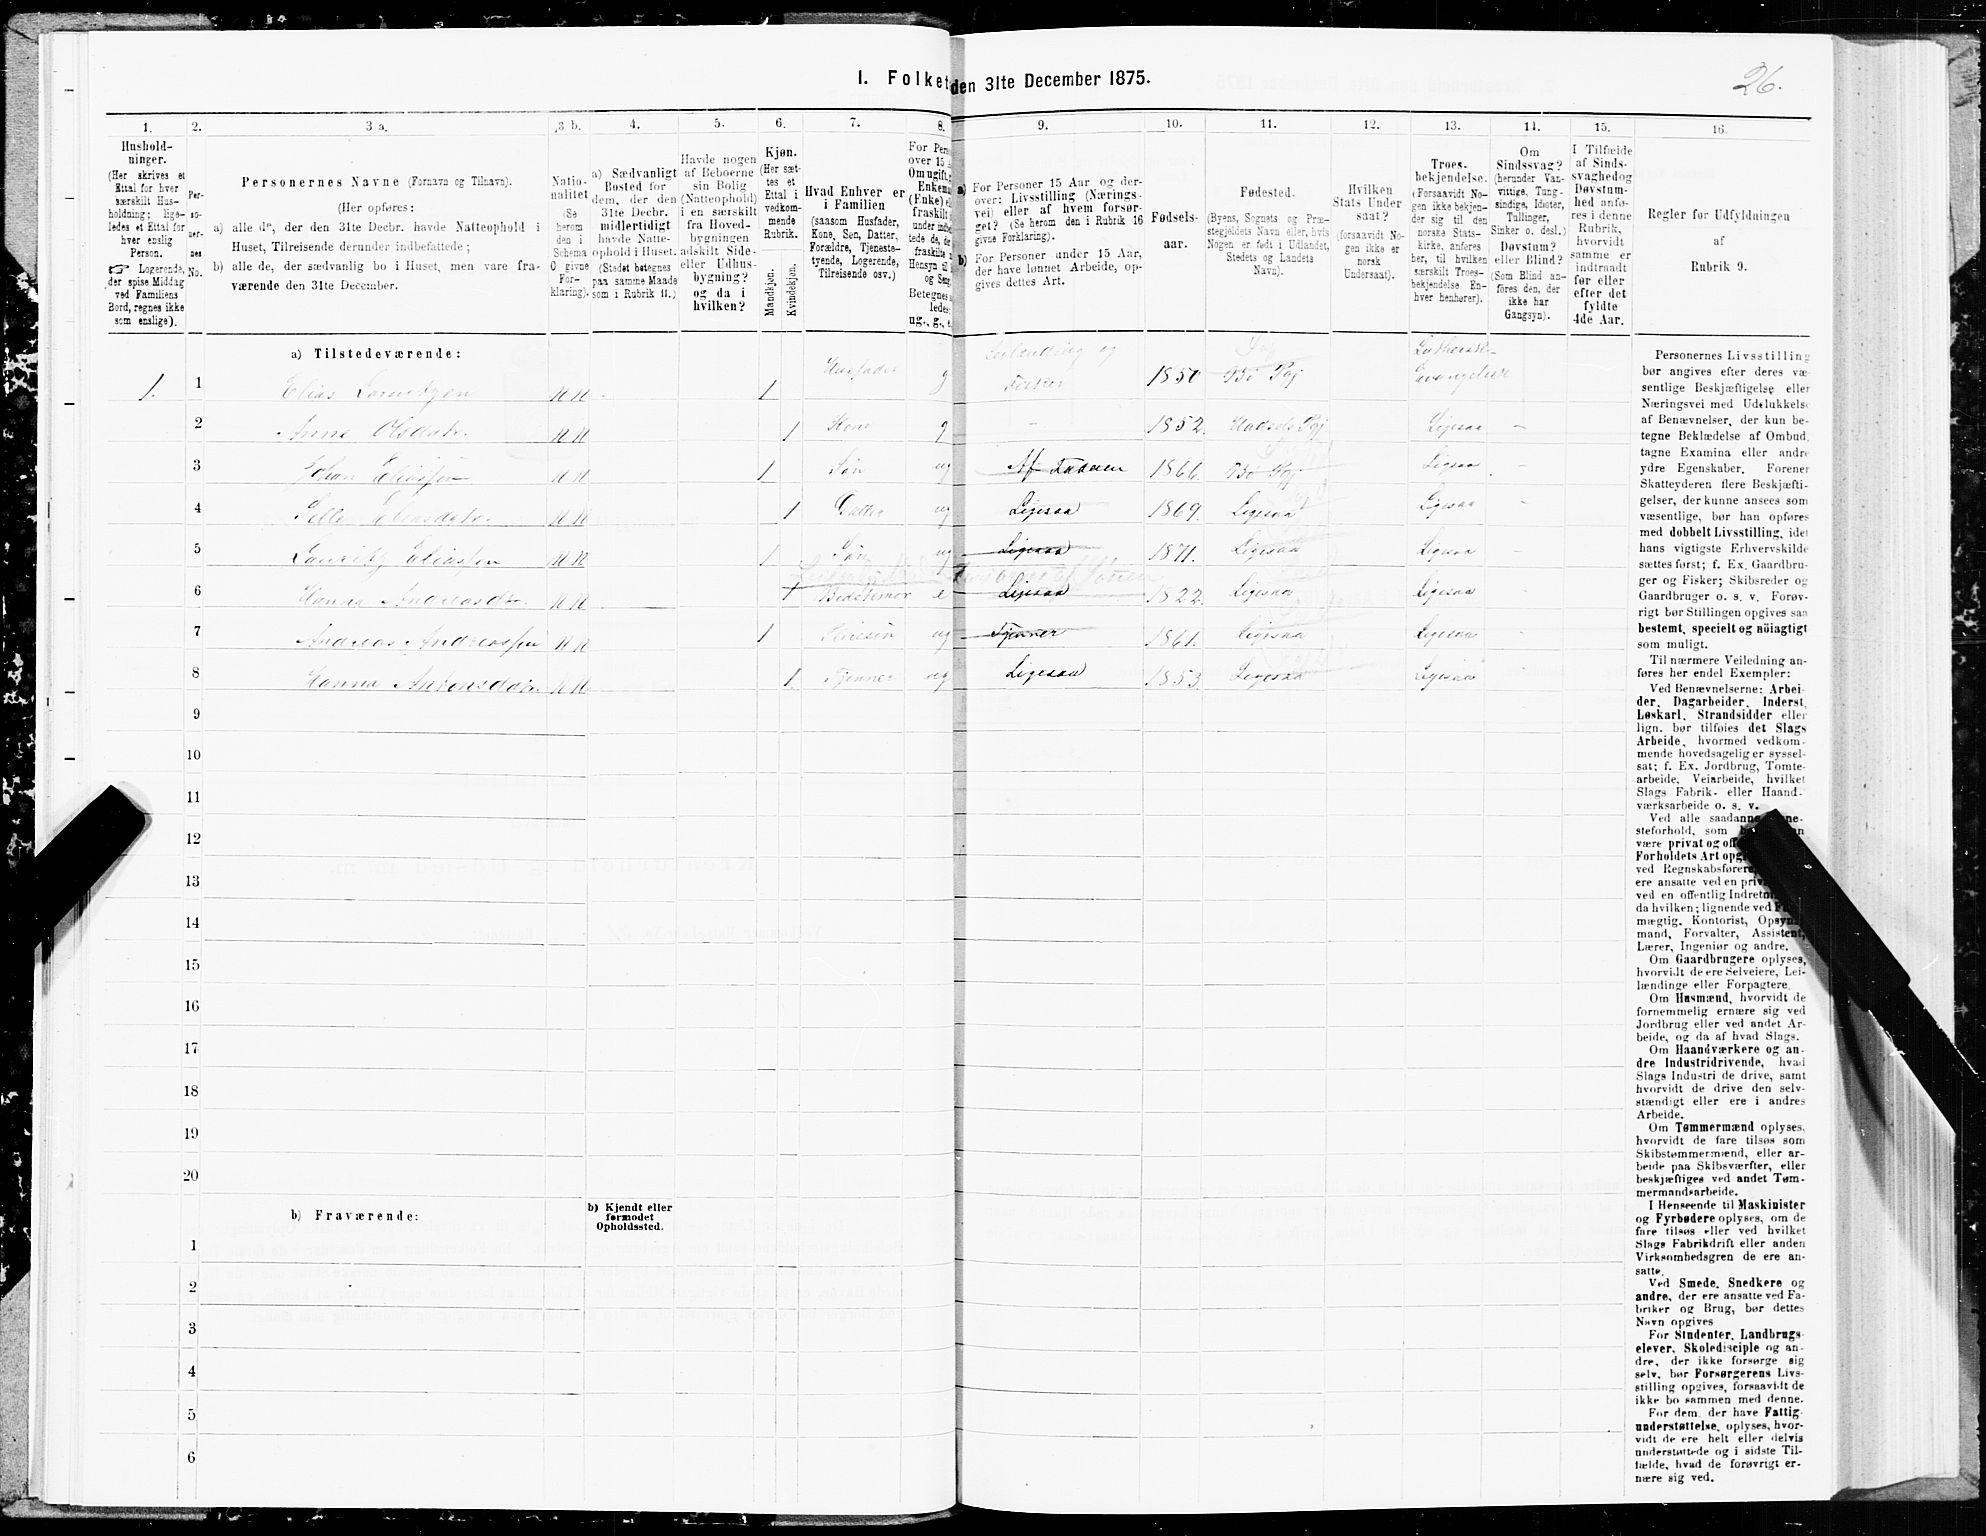 I. Folket
den 31te December 1875.
26.
1.
2.
3 a.
3 b.
4.
5.
6.
7.
8.
9.
10.
11.
12.
13.
14.
15.
16.
Hushold-
ninger.
(Her skrives et
Ettal for hver
særskilt Hus-
holdning; lige-
ledes et Ettal for
hver enslig
Person.
☞ Logerende,
der spise Middag
ved Familiens
Bord, regnes ikke
som enslige).
Per-
so-
ner-
nes
No.
Personernes Navne (Fornavn og Tilnavn).
(Her opføres:
a) alle de, der den 31te Decbr. havde Natteophold i
Huset, Tilreisende derunder indbefattede;
b) alle de, der sædvanlig bo i Huset, men vare fra-
værende den 31te December.
Natio-
nalitet
(Se
herom
den i
Schema
O givne
For-
klaring).
a) Sædvanligt
Bosted for
dem, der den
31te Decbr.
midlertidigt
havde Natte-
ophold i Huset.
(Stedet betegnes
paa samme Maade
som i Rubrik 11.)
Havde nogen
af Beboerne
sin Bolig
(Natteophold)
i en særskilt
fra Hoved-
bygningen
adskilt Side-
eller Udhus-
bygning?
og da i
hvilken?
Kjøn.
(Her sæt-
tes et
Ettal i
vedkom-
mende
Rubrik.
Mandkjøn.
Kvindekjøn.
Hvad Enhver er
i Familien
(saasom Husfader,
Kone, Søn, Datter,
Forældre, Tjeneste-
tyende, Logerende,
Tilreisende osv.)
For Pers
over 15 A
Om ugift, g
Enkema
(Enke) el
fraskilt
under indbe
tede de, der
fraskilte
Hensyn til
og Seng
Betegnes s
ledes:
ug., g., e.
a) For Personer 15 Aar og der-
over: Livsstilling (Nærings-
vei) eller af hvem forsør-
get? (Se herom den i Rubrik 16
givne Forklaring).
b) For Personer under 15 Aar,
der have lønnet Arbeide, op-
gives dettes Art.
Fødsels-
aar.
Fødested.
(Byens, Sognets og Præ-
stegjeldets Navn eller, hvis
Nogen er født i Udlandet,
Stedets og Landets
Navn).
Hvilken
Stats Under
saat?
(forsaavidt No-
gen ikke er
norsk
Undersaat).
Troes-
bekjendelse.
(Forsaavidt No-
gen ikke bekjen-
der sig til den
norske Stats-
kirke, anføres
her, til hvilken
særskilt Troes-
bekjendelse En-
hver henhører).
Om
Sindssvag?
(herunder Van-
vittige, Tung-
sindige, Idioter,
Tullinger,
Sinker o. desl.)
Døvstum?
eller Blind?
(Som Blind an-
føres den, der
ikke har
Gangsyn).
I Tilfælde
af Sinds-
svaghed og
Døvstum-
hed anfø-
res i denne
Rubrik,
hvorvidt
samme er
indtraadt
før eller
efter det
fyldte
4de Aar.
Regler for Udfyldningen
af
Rubrik 9.
a) Tilstedeværende:
1. 1 Elias NN. 1 Husfader g Leilænding og Fisker 1850 Bø Pgj Luthersk Evangelisk
2 Anna Olsdatr. NN 1 Kone g - 1852. Hadsels Pgj Ligesaa -
3 Johan Eliassen NN 1 Søn ug Af Faderen 1866. Bø Pgj Ligesaa -
4 Eliasdatr. NN 1 Datter ug Ligesaa 1869. Ligesaa Ligesaa -
5 Lauritz Eliassen NN 1 Søn ug Ligesaa 1871. Ligesaa Ligesaa -
6 Hanna Andreasdr. NN 1 Bedstemor e Ligesaa 1822. Ligesaa Ligesaa -
7 Andreas Andreassen NN 1 ug Tjener 1861. Ligesaa Ligesaa -
8 Hanna Antonsdatr. NN. 1 Tjener ug Ligesaa 1853. Ligesaa Ligesaa
9
10
11
12
13
14
15
16
17
18
19
20
b) Fraværende:
b) Kjendt eller
formodet
Opholdssted.
1
2
3
4
5
6
Personernes Livsstilling
bør angives efter deres væ-
sentlige Beskjæftigelse eller
Næringsvei med Udelukkelse
af Benævnelser, der kun be-
tegne Beklædelse af Ombud,
tagne Examina eller andre
ydre Egenskaber. Forener
Skatteyderen flere Beskjæfti-
gelser, der kunne ansees som
væsentlige, bør han opføres
med dobbelt Livsstilling, idet
hans vigtigste Erhvervskilde
sættes først; f. Ex. Gaardbru-
ger og Fisker; Skibsreder og
Gaardbruger o. s. v. Forøv-
rigt bør Stillingen opgives saa
bestemt, specielt og nöiagtigt
som muligt.
Til nærmere Veiledning an-
føres her endel Exempler:
Ved Benævnelserne: Arbei-
der, Dagarbeider, Inderst,
Løskarl, Strandsidder eller
lign. bør tilføies det Slags
Arbeide, hvormed vedkom-
mende hovedsagelig er syssel-
sat; f. Ex. Jordbrug, Tomte-
arbeide, Veiarbeide, hvilket
Slags Fabrik- eller Haand-
værksarbeide o. s. v.
Ved alle saadanne
steforhold, som
være privat og of
Forholdets Art opg
ved Regnskabsførere,
ere ansatte ved en priv
ved en offentlig Indretn
da hvilken; lignende ved
mægtig, Kontorist, Opsyns-
mand, Forvalter, Assistent,
Lærer, Ingeniør og andre.
Om Gaardbrugere oplyses,
hvorvidt de ere Selveiere, Lei-
lændinge eller Forpagtere.
Om Husmænd, hvorvidt de
fornemmelig ernære sig ved
Jordbrug eller ved andet Ar-
beide, og da af hvad Slags.
Om Haandværkere og an-
dre Industridrivende, hvad
Slags Industri de drive, samt
hvorvidt de drive den selv-
stændigt eller ere i andres
Arbeide.
Om Tømmermænd oplyses,
hvorvidt de fare tilsøs som
Skibstømmermænd, eller ar-
beide paa Skibsværfter, eller
beskjæftiges ved andet Tøm-
mermandsarbeide.
I Henseende til Maskinister
og Fyrbødere oplyses, om de
fare tilsøs eller ved hvilket
Slags Fabrikdrift eller anden
Virksomhedsgren de ere an-
satte.
Ved Smede, Snedkere og
andre, der ere ansatte ved Fa-
briker og Brug, bør dettes
Navn opgives
For Studenter, Landbrugs-
elever, Skoledisciple og an-
dre, der ikke forsørge sig
selv, bør Forsørgerens Livs-
stilling opgives, forsaavidt de
ikke bo sammen med denne.
For dem, der have Fattig-
understøttelse, oplyses, hvor-
vidt de ere helt eller delvis
understøttede og i sidste Til-
fælde, hvad de forøvrigt er-
nære sig ved.